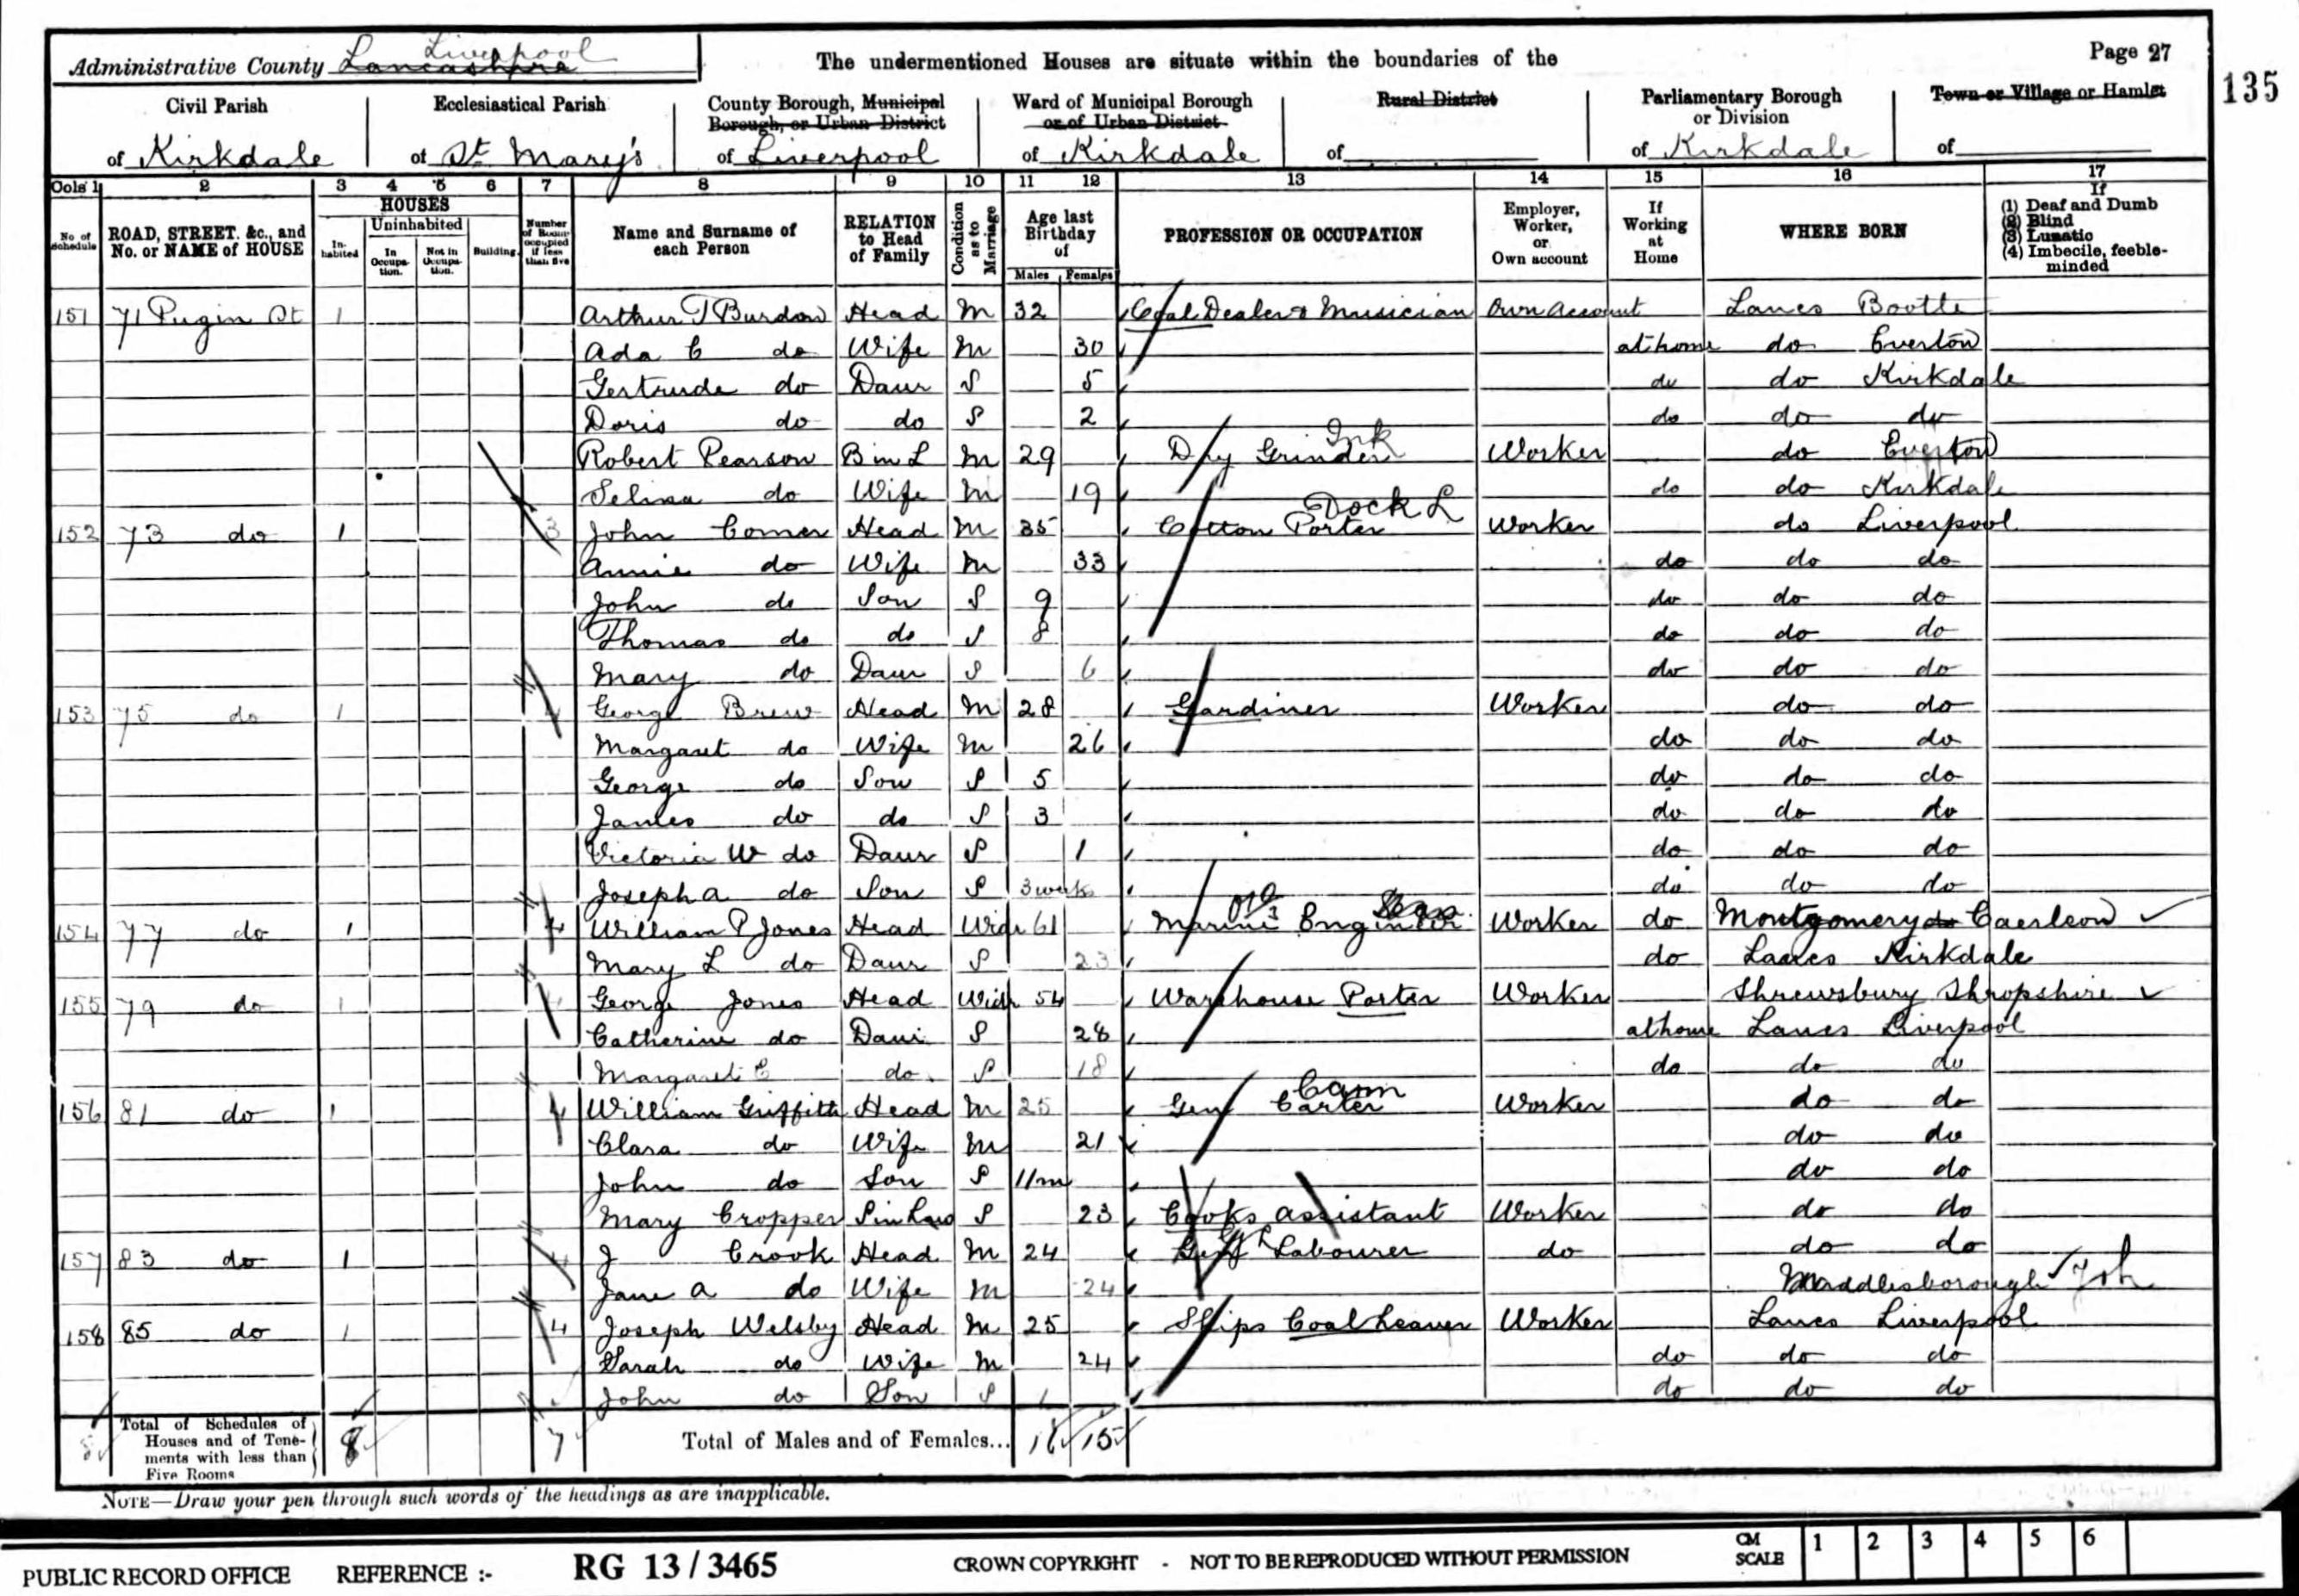 Administrative County Lancashire Liverpool
The undermentioned Houses are situate within the boundaries of the
Page 27
135
Civil Parish of Kirkdale
Ecclesiastical Parish of St Mary's
County Borough, Municipal Borough, or Urban District of Liverpool
Ward of Municipal Borough or of Urban District of Kirkdale
Rural District of
Parliamentary Borough or Division of Kirkdale
Town or Village or Hamlet of
Cols 1 2 3 4 5 6 7 8 9 10 11 12 13 14 15 16 17
No of Schedule
ROAD, STREET, &c., and No. or NAME of HOUSE
HOUSES
Inhabited
Uninhabited
In Occupation.
Not in Occupation.
Building.
Number of Rooms occupied if less than five
Name and Surname of each Person
RELATION to Head of Family
Condition as to Marriage
Age last Birthday of
Males Females
PROFESSION OR OCCUPATION
Employer, Worker, or Own account
If Working at Home
WHERE BORN
If (1) Deaf and Dumb
(2) Blind
(3) Lunatic
(4) Imbecile, feeble-minded
151 71 Pugin St 1 Arthur T Burdon Head M 32 Coal Dealer & Musician Own Account Lancs Bootle
Ada C do Wife M 30 at home do Everton
Gertrude do Daur S 5 do do Kirkdale
Doris do do S 2 do do do
Robert Pearson B in L M 29 Dry Grinder Ink Worker do Everton
Selina do Wife M 19 do do Kirkdale
152 73 do 1 3 John Comer Head M 35 Cotton Porter Dock L Worker do Liverpool
Annie do Wife M 33 do do do
John do Son S 9 do do do
Thomas do do S 8 do do do
Mary do Daur S 6 do do do
153 75 do 1 4 George Brew Head M 28 Gardiner Worker do do
Margaret do Wife M 26 do do do
George do Son S 5 do do do
James do do S 3 do do do
Victoria W do Daur S 1 do do do
Joseph A do Son S 3 weeks do do do
154 77 do 1 4 William P Jones Head Widr 61 Marine Engineer Worker do Montgomery do Caerleon
Mary L do Daur S 23 do Lancs Kirkdale
155 79 do 1 4 George Jones Head Widr 54 Warehouse Porter Worker Shrewsbury Shropshire
Catherine do Daur S 28 at home Lancs Liverpool
Margaret C do S 18 do do do
156 81 do 1 4 William Griffith Head M 25 Genl Carter Cam Worker do do
Clara do Wife M 21 do do
John do Son S 11m do do
Mary Cropper S in Law S 23 Cooks Assistant Worker do do
157 83 do 1 4 J Crook Head M 24 Genl Labourer do do do
Jane A do Wife M 24 Maddlesborough
158 85 do 1 4 Joseph Welsby Head M 25 Ships Coal Heaver Worker Lancs Liverpool
Sarah do Wife M 24 do do do
John do Son S 1 do do do
Total of Schedules of Houses and of Tenements with less than Five Rooms 8 8 7
Total of Males and of Females... 18 15
NOTE—Draw your pen through such words of the headings as are inapplicable.
PUBLIC RECORD OFFICE REFERENCE :- RG 13 / 3465 CROWN COPYRIGHT - NOT TO BE REPRODUCED WITHOUT PERMISSION CM SCALE 1 2 3 4 5 6